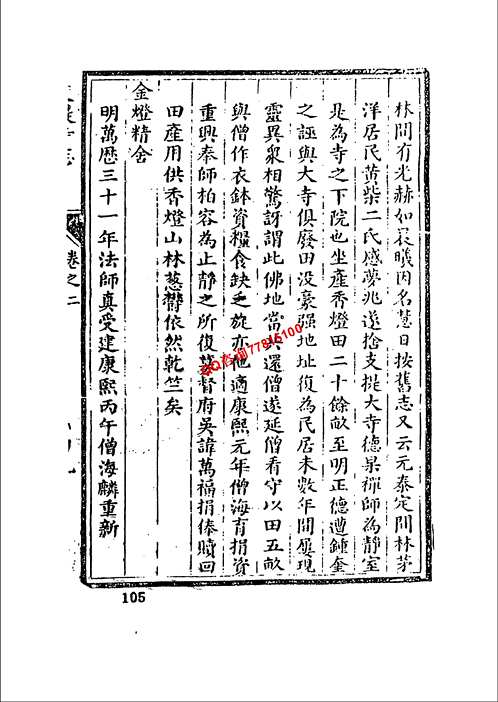 林間有光赫如晨曦因名慧日按舊志又云元泰定間林茅
洋居民黄柴二氏感夢兆遂捨支提大寺德杲禪師為靜室
是為寺之下院也坐產香燈田二十餘畝至明正德遭鍾奎
之誣與大寺俱廢田没豪强地址復為民居未數年間屢現
靈異衆相驚訝謂此佛地當還僧遂延僧看守以田五畝
與僧作衣鉢資糧食缺乏旋亦他適康熙元年僧海育捐資
重興奉師柏容為止靜之所復蒙督府吳諱萬福捐俸贖回
田產用供香燈山林葱鬱依然乾竺矣
金燈精舍
明萬歷三十一年法師真受建康熙丙午僧海麟重新
卷之二
105